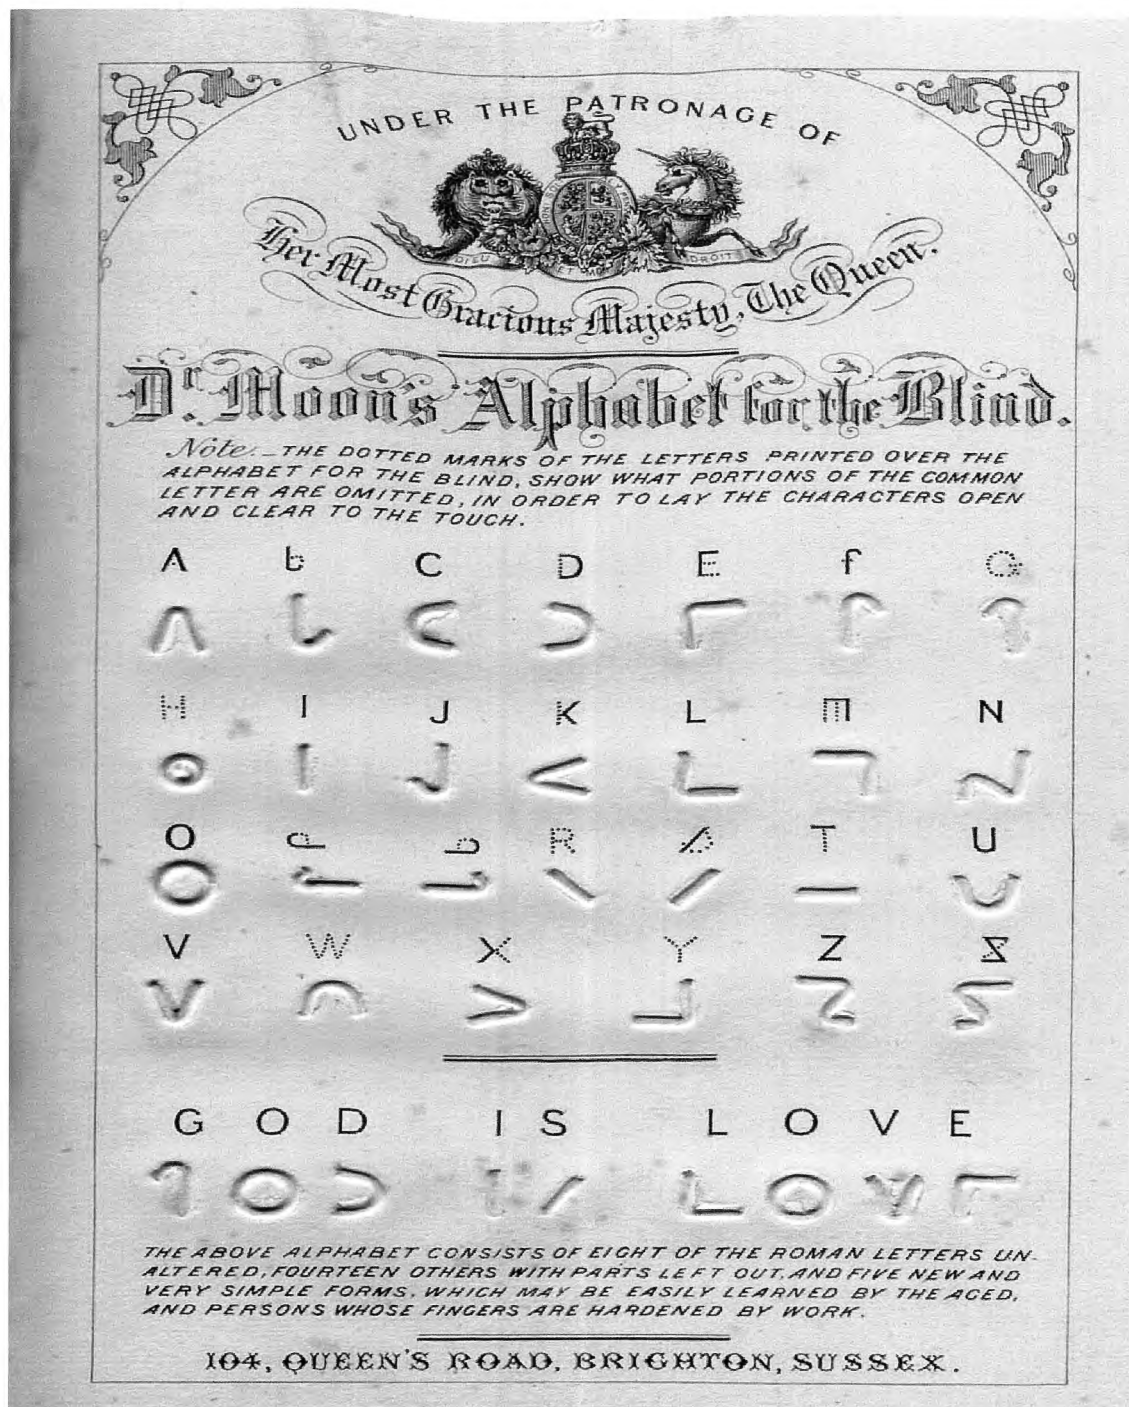 UNDER THE PATRONAGE OF
DIEU ET MON DROIT
Her Most Gracious Majesty, The Queen.
Dr. Moon's Alphabet for the Blind.
Note.— THE DOTTED MARKS OF THE LETTERS PRINTED OVER THE
ALPHABET FOR THE BLIND, SHOW WHAT PORTIONS OF THE COMMON
LETTER ARE OMITTED, IN ORDER TO LAY THE CHARACTERS OPEN
AND CLEAR TO THE TOUCH.
A b C D E f G
H I J K L M N
O P q R S T U
V W X Y Z &
G O D I S L O V E
THE ABOVE ALPHABET CONSISTS OF EIGHT OF THE ROMAN LETTERS UN-
ALTERED, FOURTEEN OTHERS WITH PARTS LEFT OUT, AND FIVE NEW AND
VERY SIMPLE FORMS, WHICH MAY BE EASILY LEARNED BY THE AGED,
AND PERSONS WHOSE FINGERS ARE HARDENED BY WORK.
104, QUEEN'S ROAD, BRIGHTON, SUSSEX.